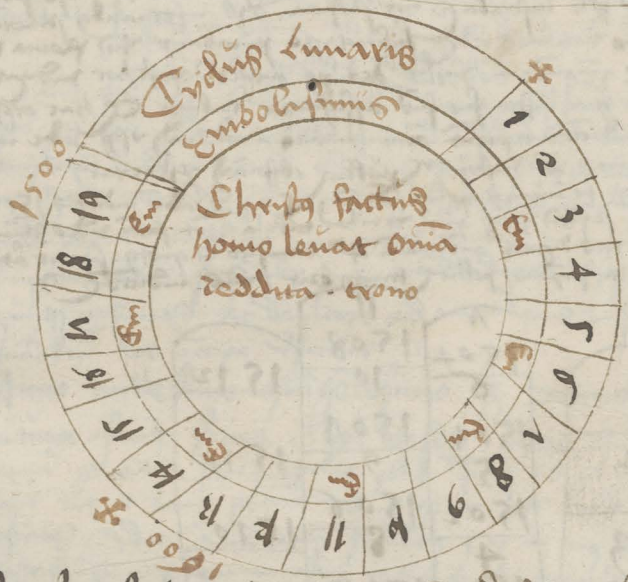 Cyclus Lunaris
Embolismus
Christus factus
homo levat omia
reddita . trono
1500
1
2
3
4
5
6
7
8
9
10
11
12
13
14
15
16
17
18
19
Em
Em
Em
Em
Em
Em
Em
1600